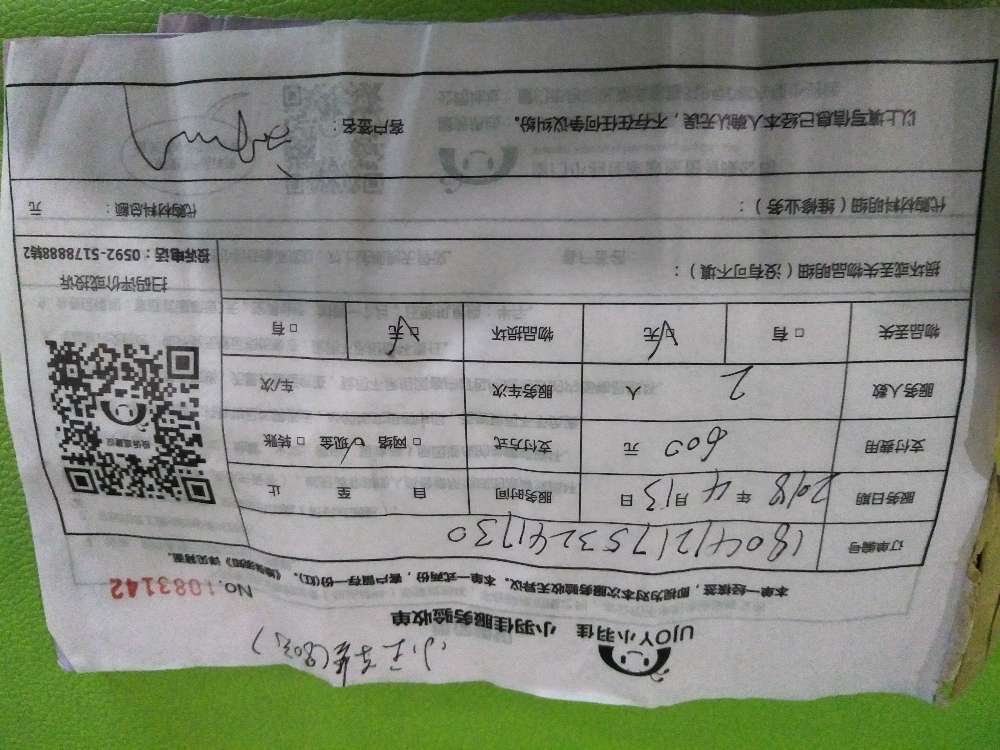 UJOY小羽佳 小羽佳服务验收单
本单一经核签，即视为对本次服务验收无异议。本单一式两份，客户留存一份(红)。
No.1083142
订单编号 1804121753241730
服务日期 2018年4月13日 服务时间 自 至 止
支付费用 600 元 支付方式 □网络 ☑现金 □转账
服务人数 2 人 服务车次 车/次
物品丢失 □有 ☑无 物品损坏 ☑无 □有
损坏或丢失物品明细（没有可不填）：
扫码评价或投诉
投诉电话：0592-5178888转2
代购材料明细（维修业务）： 代购材料总额： 元
以上填写信息已经本人确认无误，不存在任何争议纠纷。 客户签名：